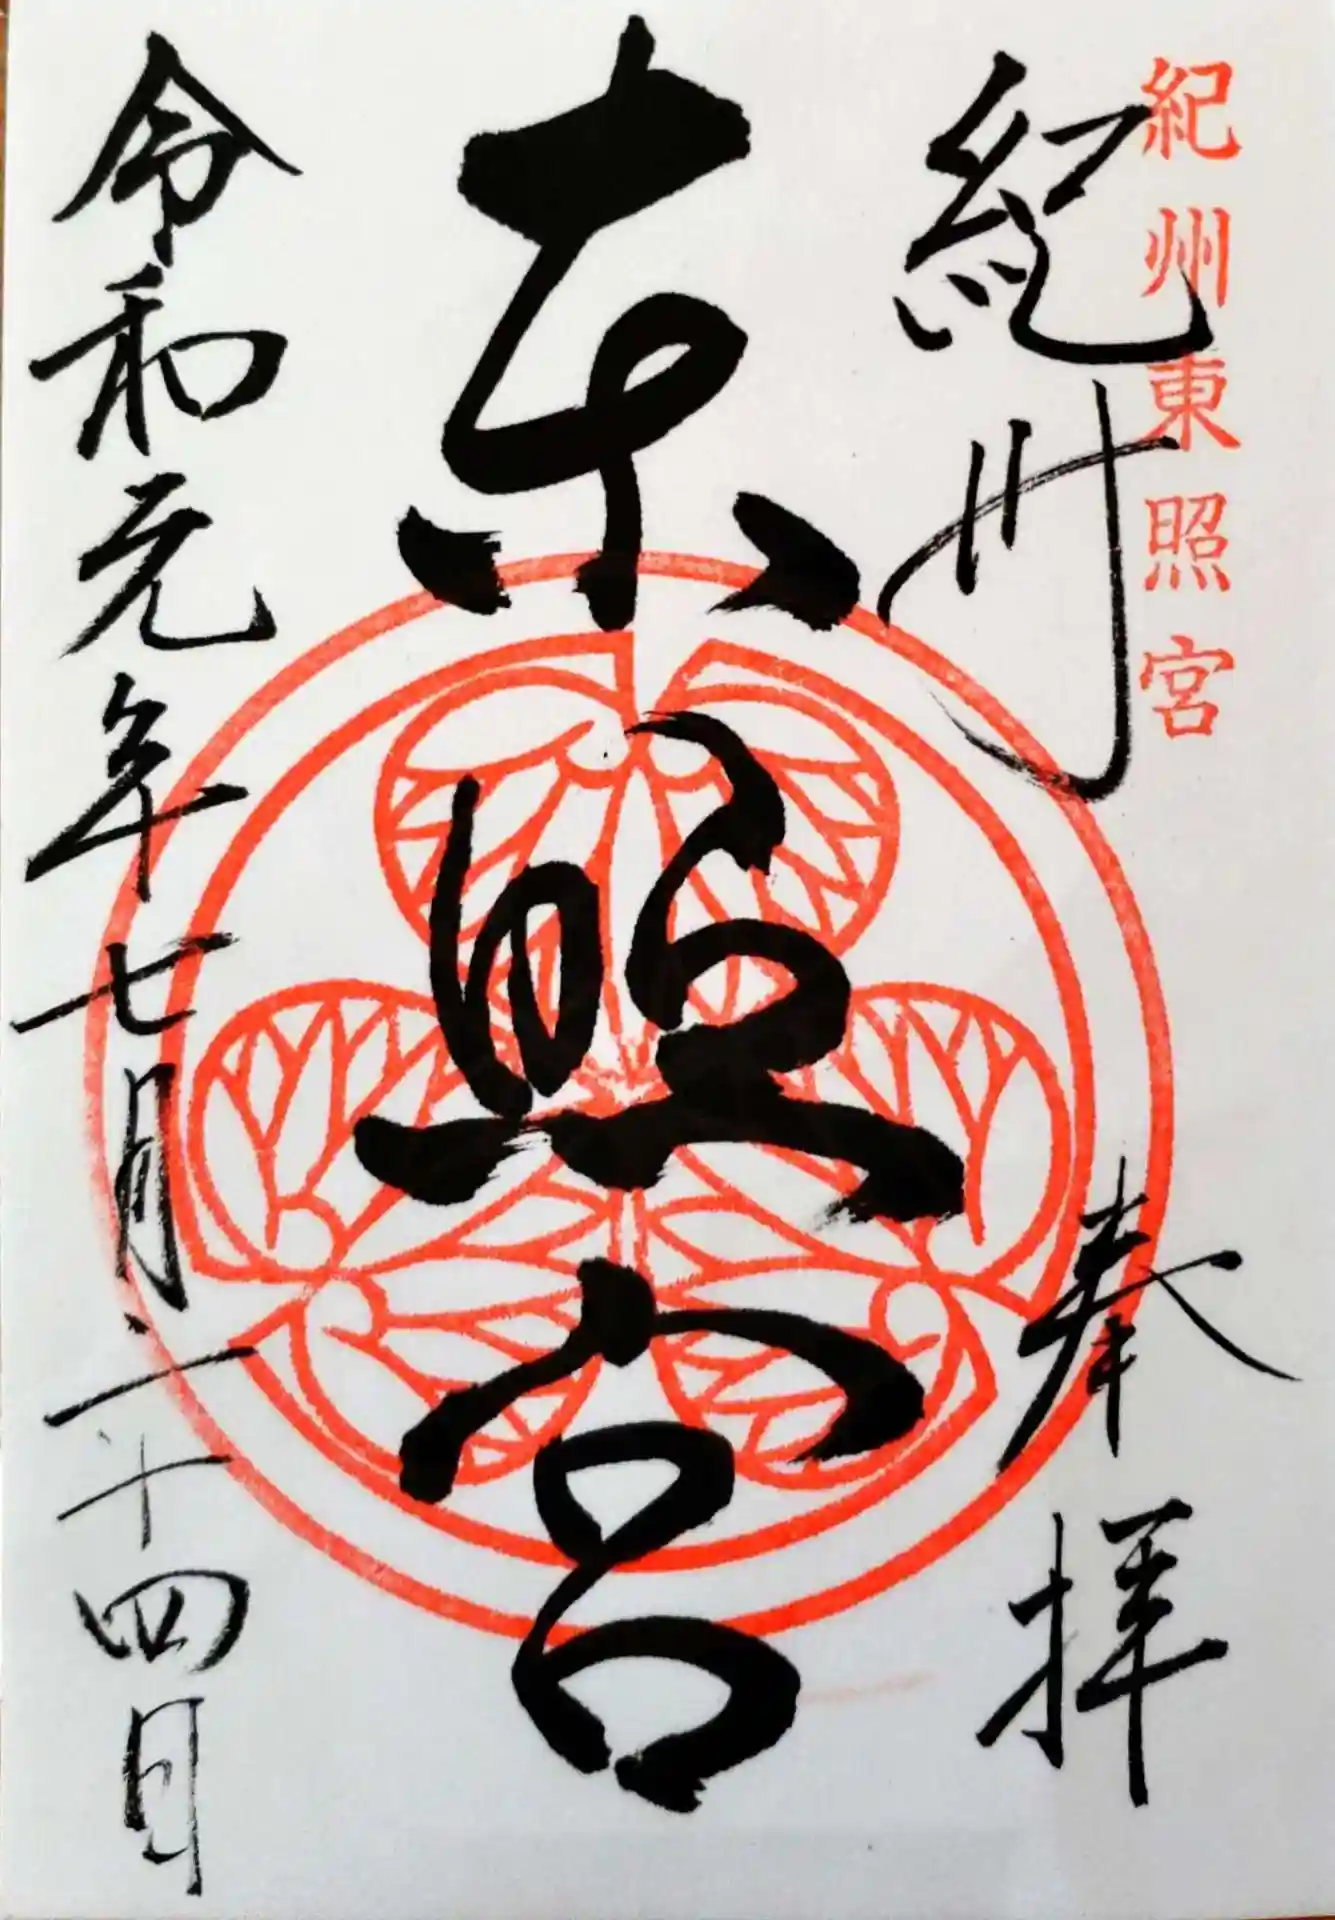 紀州東照宮
紀州
奉拝
東照宮
令和元年七月二十四日